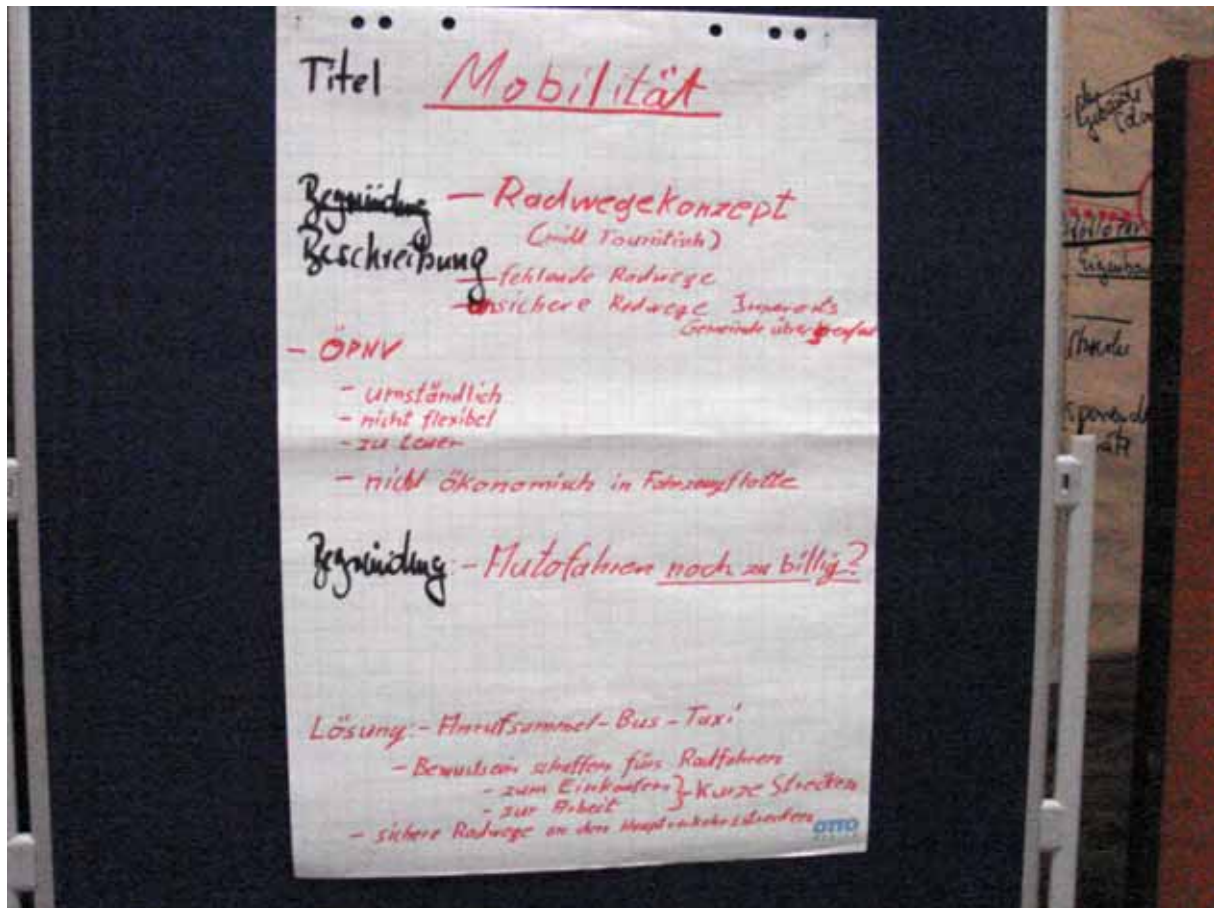 Titel Mobilität
Begründung - Radwegekonzept
(nicht Touristisch)
Beschreibung
- fehlende Radwege
- unsichere Radwege Innerorts
Gemeinde übergreifend
- ÖPNV
- umständlich
- nicht flexibel
- zu teuer
- nicht ökonomisch in Fahrzeugflotte
Begründung - Autofahren noch zu billig?
Lösung: - Anrufsammel-Bus-Taxi
- Bewustsein schaffen fürs Radfahren
- zum Einkaufen } - Kurze Strecken
- zur Arbeit
- sichere Radwege an den Hauptverkehrsstrecken
OTTO